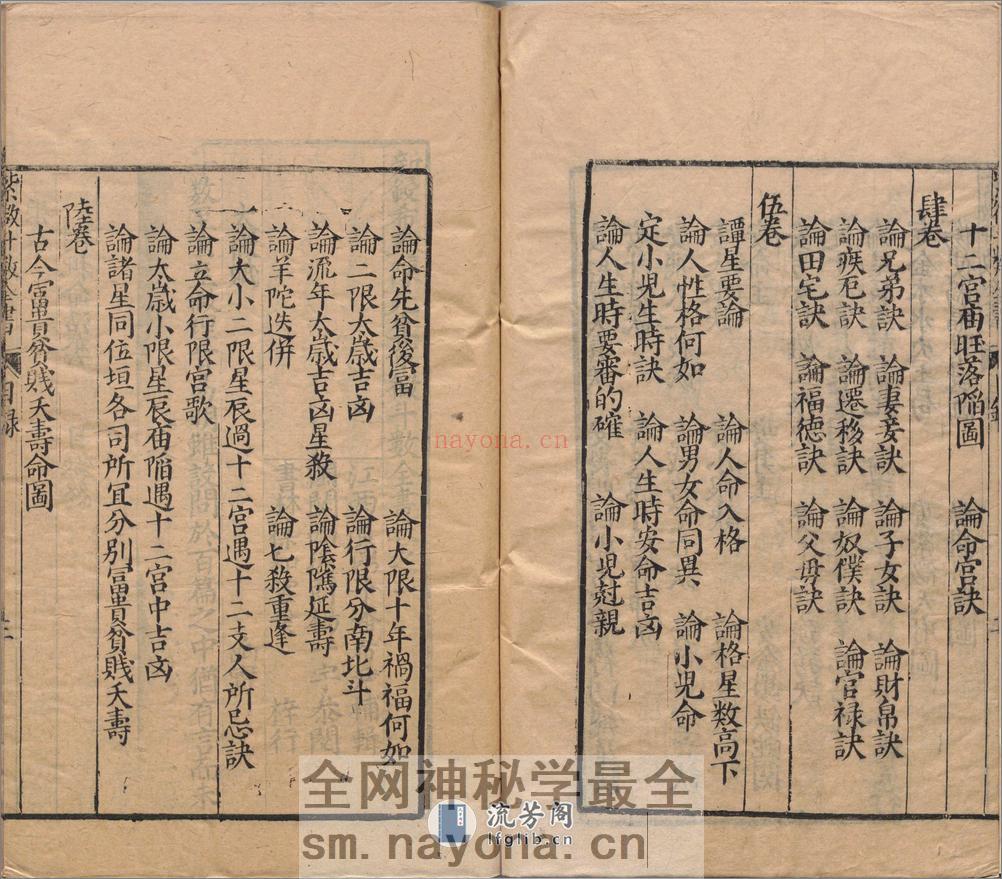 十二宮庙旺落陷圖 論命宮訣
肆卷
論兄弟訣 論妻妾訣 論子女訣 論財帛訣
論疾厄訣 論遷移訣 論奴僕訣 論官禄訣
論田宅訣 論福德訣 論父母訣
伍卷
譚星要論 論人命入格 論格星數高下
論人性格何如 論男女命同異 論小児命
定小児生時訣 論人生時安命吉凶
論人生時要審的確 論小児尅親
論命先貧後富 論大限十年禍福何如
論二限太歲吉凶 論行限分南北斗
論流年太歲吉凶星殺 論陰隲延壽
論羊陀迭併 論七殺重逢
論大小二限星辰過十二宮遇十二支人所忌訣
論立命行限宮歌
論太歲小限星辰庙陷遇十二宮中吉凶
論諸星同位垣各司所冝分別富貴貧賤夭壽
陸卷
古今富貴貧賤夭壽命圖
紫微斗數全書 目録
nayona.cn
全网神秘学最全
流芳阁
lfglib.cn
sm.nayona.cn